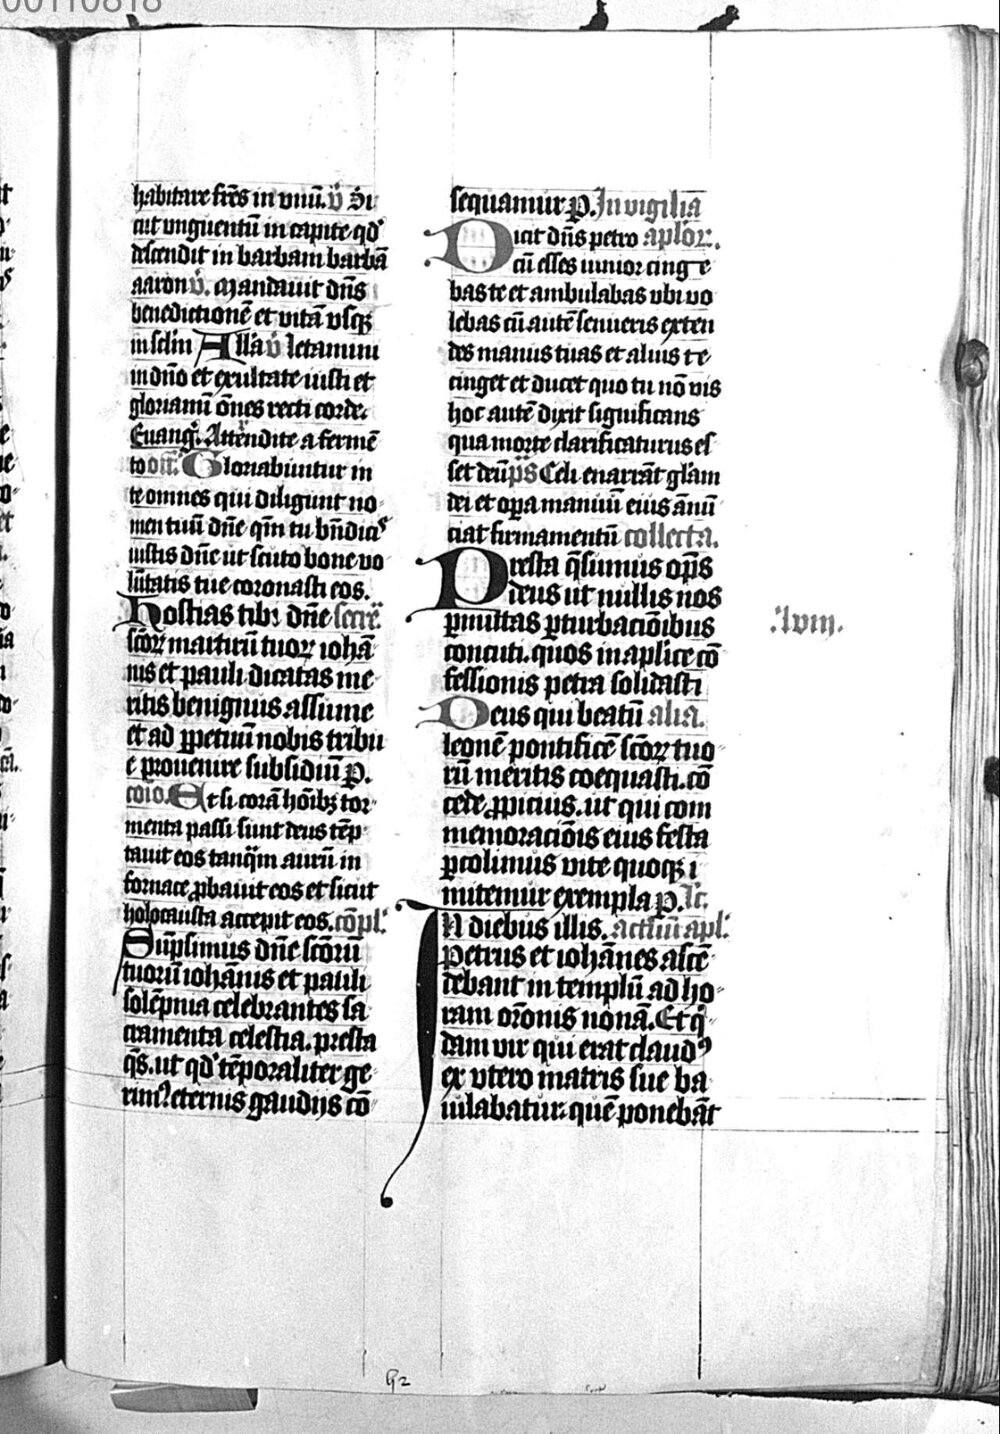 00110818
habitare fr̄es in vnū. v̊ Si
cut vnguentū in capite qd̛
descendit in barbam barbā
aaron v̊. Mandauit dn̄s
benedictionē et vitā vsqȝ
in sclm̄ All̄a v̊ letamini
in dn̄o et exultate iusti et
gloriamī ōnes recti corde.
Euang̛. Attendite a fermē
to off̄. Gloriabuntur in
te omnes qui diligunt no
men tuū dn̄e qm̄ tu bn̄dicis
iustis dn̄e ut scuto bone vo
lūtatis tue coronasti eos.
Hostias tibi dn̄e secre̅
scōrꝝ martirū tuorꝝ iohā
nis et pauli dicatas me
ritis benignus assume
et ad ꝑpetuū nobis tribu
e prouenire subsidiū P.
cōio. Et si corā hōibȝ tor
menta passi sunt deus tēp
tauit eos tanq̄m aurū in
fornace ꝓbauit eos et sicut
holocausta accepit eos. cōpl̛.
Sūpsimus dn̄e scōrū
tuorū iohānis et pauli
solēpnia celebrantes sa
cramenta celestia. presta
q̄s. ut qd̛ tēporaliter ge
rimꝰ eternis gaudijs cō
sequamur. P. In vigilia
Dicit dn̄s petro apl̄orꝝ.
cū esses iunior cinge
bas te et ambulabas vbi vo
lebas cū autē senueris exten
des manus tuas et alius te
cinget et ducet quo tu nō vis
hoc autē dixit significans
qua morte clarificaturus es
set deū p̄s Celi enarrāt glām
dei et oꝑa manuū eius ānū
ciat firmamentū collecta.
Presta q̄sumus op̄s
deus ut nullis nos
ꝑmittas ꝑturbaciōibus
concuti. quos in aplīce cō
fessionis petra solidasti
Deus qui beatū alia.
leonē pontificē scōrꝝ tuo
rū meritis coequasti. cō
cede ꝓpicius. ut qui com
memoraciōis eius festa
ꝑcolimus vite quoqȝ i
mitemur exempla P. lc̄.
IN diebus illis. actuū apl̛.
Petrus et iohānes ascē
debant in templū ad ho
ram orōnis nonā. Et q̛
dam vir qui erat claudꝰ
ex vtero matris sue ba
iulabatur. quē ponebāt
.lviij.